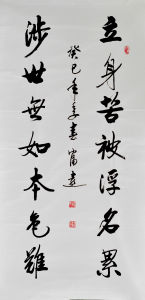 立身苦被浮名累
涉世無如本色難
癸巳年冬書富遠